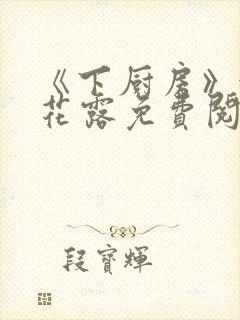 《下厨房》
花露免費閱
段寶輝